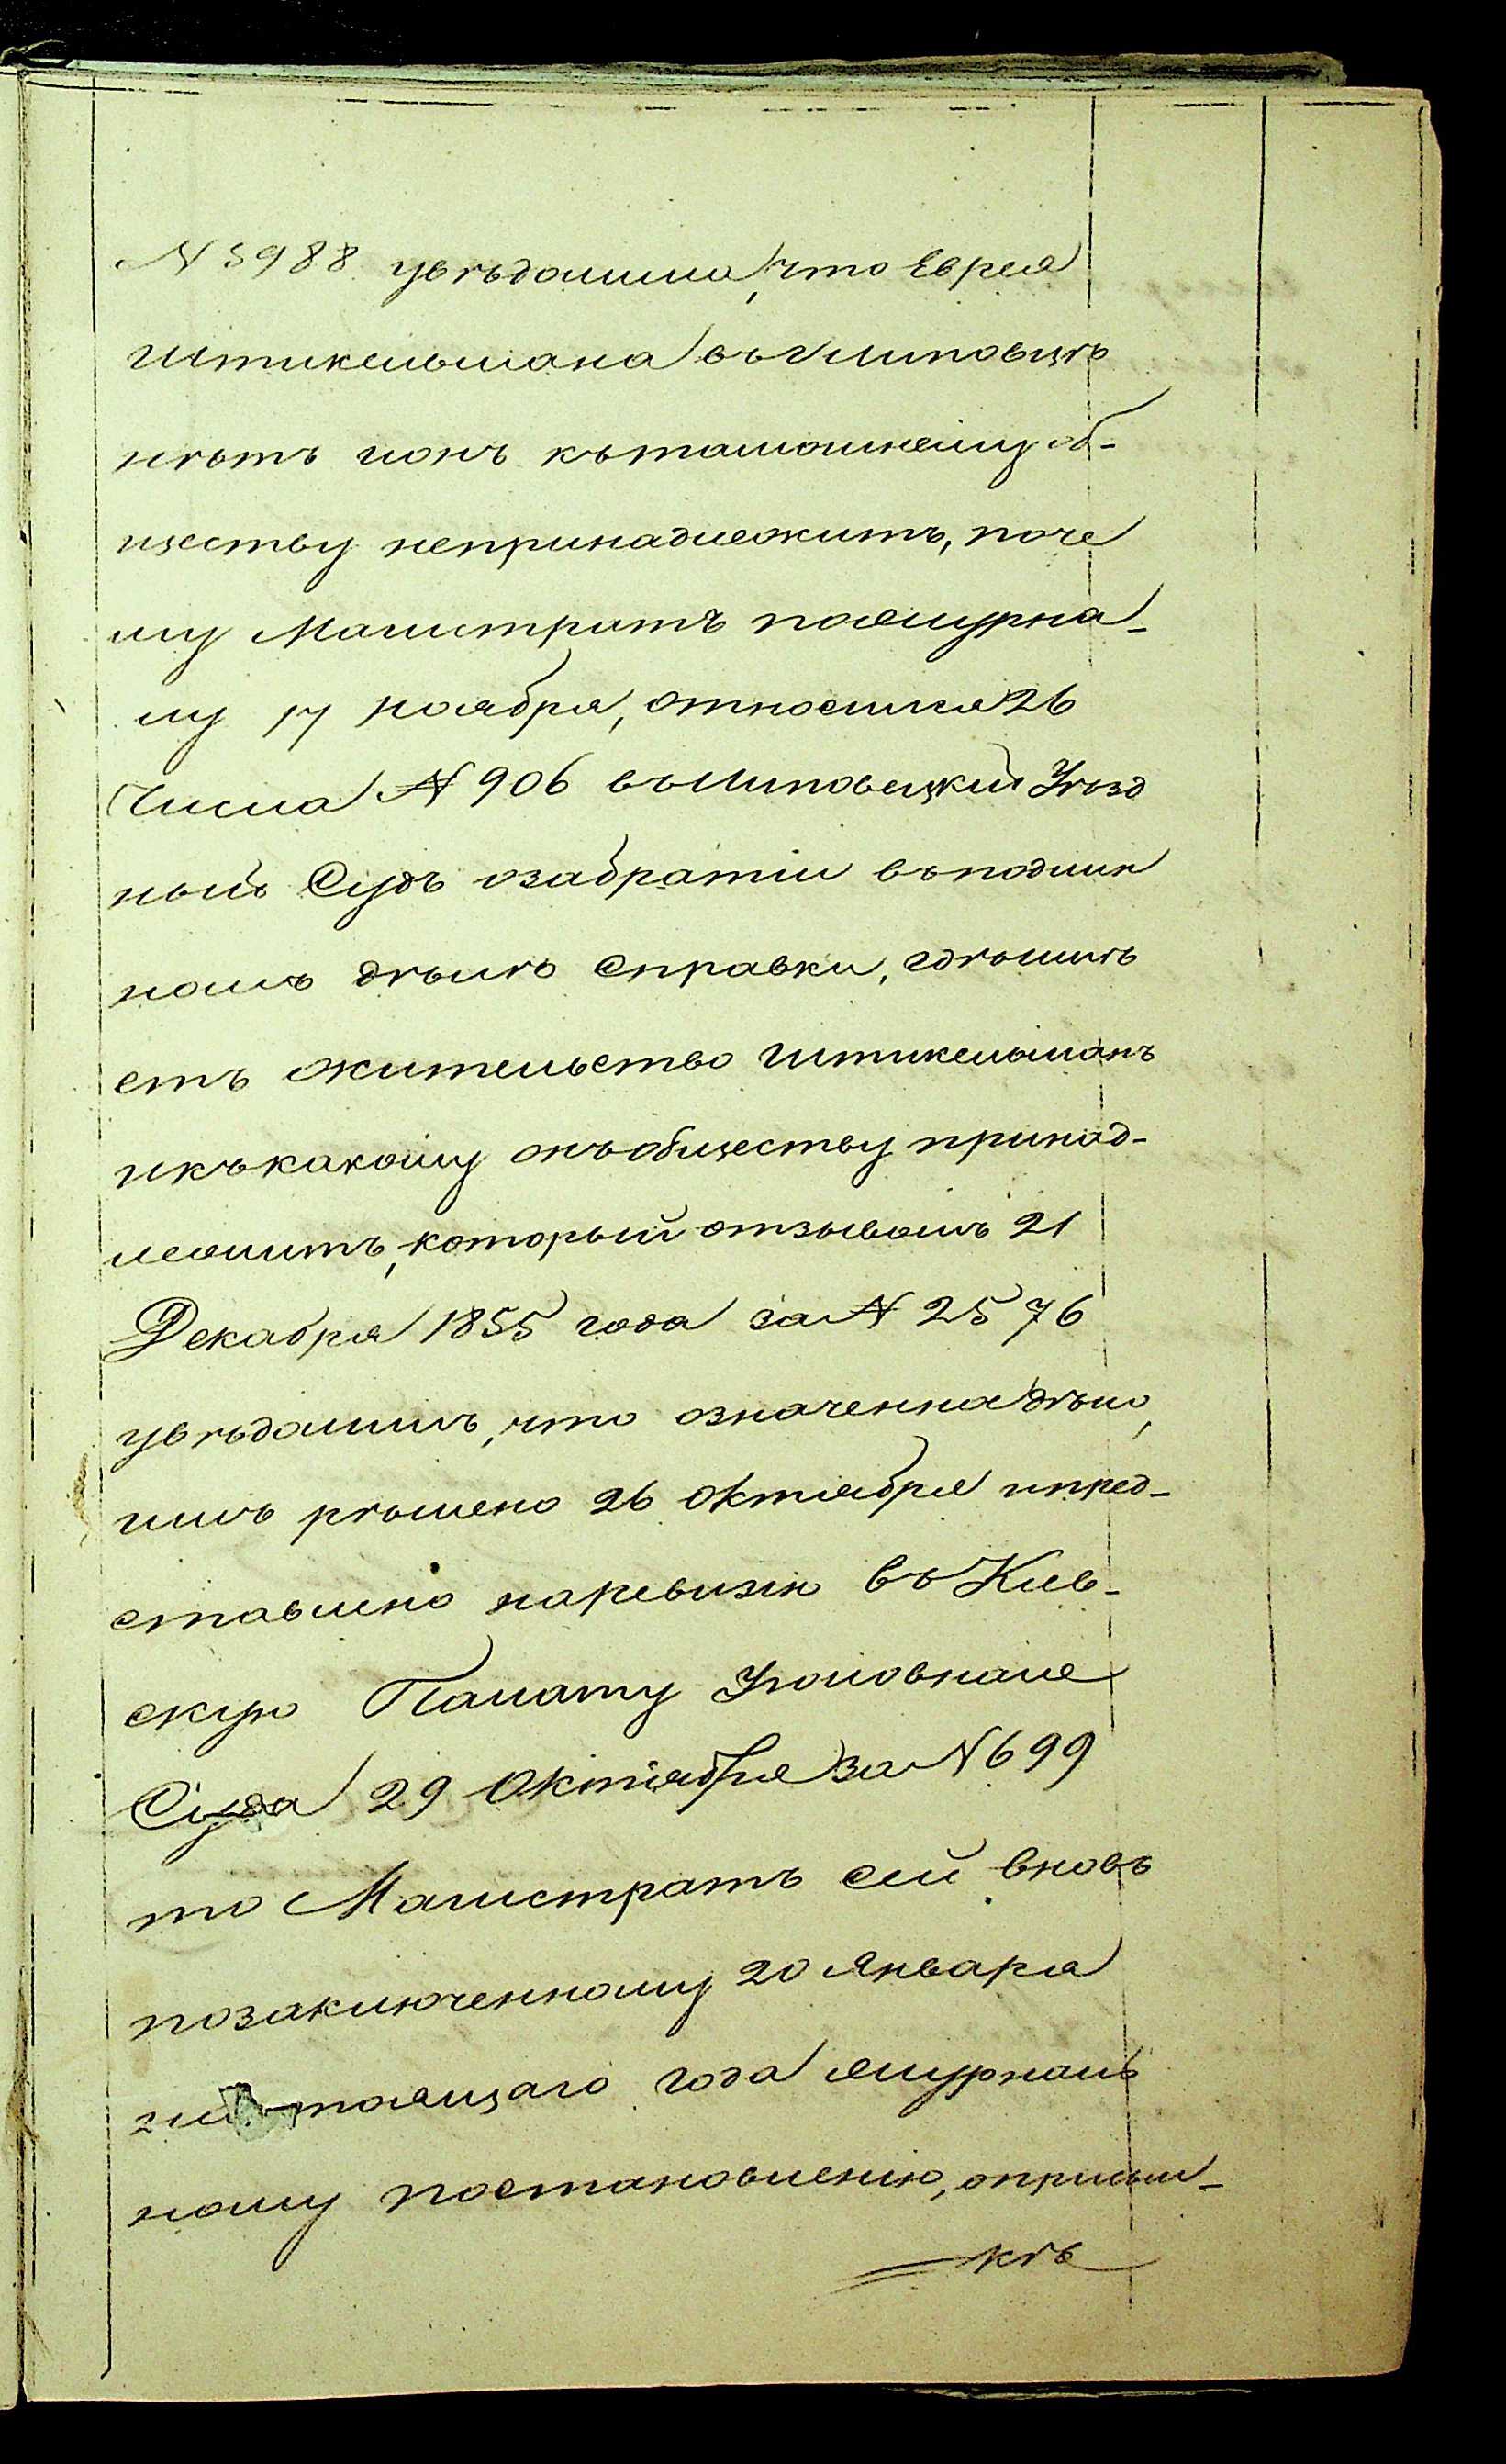 N 5988 увѣдомила, что Еврея
Штикельмана въ г Липовцѣ
нѣтъ ионъ къ тамошнему об-
ществу непринадлежитъ, поче
му Магистратъ пожурна-
лу 17 ноября, относился 26
Числа N 906 въ Липовецкій Уѣзд
ный Судъ озабратіи въ подлин
номъ дѣлѣ справки, гдѣ имѣ
етъ жительство Штикельманъ
и къ какому онъ обществу принад-
лежитъ, который отзывомъ 21
Декабря 1855 года за N 2576
увѣдомилъ, что означенна дѣло,
имъ рѣшено 26 Октября и пред-
ставлено наревизію въ Кіев-
скую Палату Уголовнаго
Суда 29 Октября за N 699
то Магистратъ сей вновь
позаключенному 20 Января
настоящаго года журналь
ному постановленію, оприсыл-
кѣ